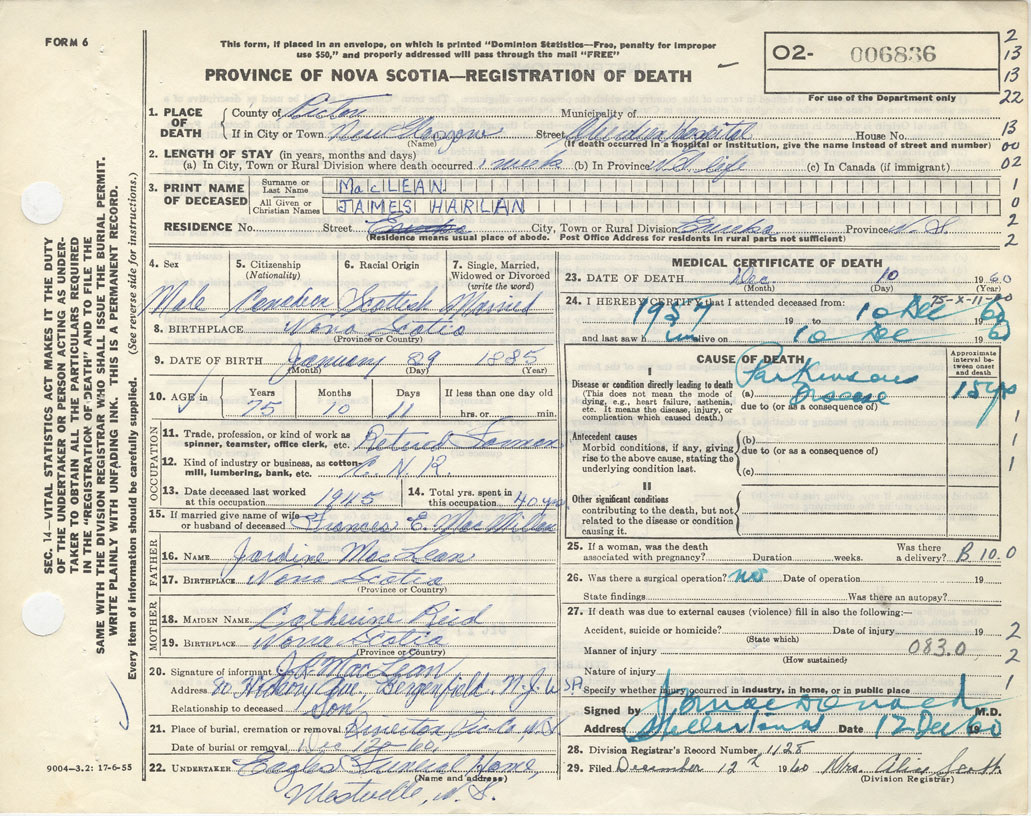 FORM 6
This form, if placed in an envelope, on which is printed "Dominion Statistics—Free, penalty for improper
use $50," and properly addressed will pass through the mail "FREE"
PROVINCE OF NOVA SCOTIA—REGISTRATION OF DEATH
O2- 006836
For use of the Department only
2
13
13
22
13
00
02
1
0
2
2
1. PLACE OF DEATH
County of Pictou Municipality of
If in City or Town New Glasgow Street Aberdeen Hospital House No.
(Name) (If death occurred in a hospital or institution, give the name instead of street and number)
2. LENGTH OF STAY (in years, months and days)
(a) In City, Town or Rural Division where death occurred 1 week (b) In Province N.S. life (c) In Canada (if immigrant)
3. PRINT NAME OF DECEASED
Surname or Last Name MacLEAN
All Given or Christian Names JAMES HARLAN
RESIDENCE No. Street Eureka City, Town or Rural Division Eureka Province N.S.
(Residence means usual place of abode. Post Office Address for residents in rural parts not sufficient)
4. Sex 5. Citizenship (Nationality) 6. Racial Origin 7. Single, Married, Widowed or Divorced (write the word)
Male Canadian Scottish Married
8. BIRTHPLACE Nova Scotia
(Province or Country)
9. DATE OF BIRTH January 29 1885
(Month) (Day) (Year)
10. AGE in Years Months Days If less than one day old
75 10 11 hrs. or min.
OCCUPATION
11. Trade, profession, or kind of work as spinner, teamster, office clerk, etc. Retired
12. Kind of industry or business, as cotton-mill, lumbering, bank, etc. C.N.R.
13. Date deceased last worked at this occupation 1945
14. Total yrs. spent in this occupation 40 yrs
15. If married give name of wife or husband of deceased Frances E. MacMillan
FATHER
16. NAME Jardine MacLean
17. BIRTHPLACE Nova Scotia
(Province or Country)
MOTHER
18. MAIDEN NAME Catherine Reid
19. BIRTHPLACE Nova Scotia
(Province or Country)
20. Signature of informant MacLean
Address 80 Hickory Ave. Bergenfield, N.J. USA
Relationship to deceased Son
21. Place of burial, cremation or removal
Date of burial or removal Dec 12-60
22. UNDERTAKER Eagles Funeral Home,
(Name and address)
Westville, N.S.
MEDICAL CERTIFICATE OF DEATH
23. DATE OF DEATH Dec 10 1960
(Month) (Day) (Year)
75-X-11-00
24. I HEREBY CERTIFY that I attended deceased from:
1957 19 to 10 Dec 1960
and last saw him alive on 10 Dec 1960
CAUSE OF DEATH
Approximate interval between onset and death
I
Disease or condition directly leading to death
(This does not mean the mode of dying, e.g., heart failure, asthenia, etc. It means the disease, injury, or complication which caused death.)
(a) Parkinsons Disease 15 yrs
due to (or as a consequence of)
Antecedent causes
Morbid conditions, if any, giving rise to the above cause, stating the underlying condition last.
(b)
due to (or as a consequence of)
(c)
II
Other significant conditions
contributing to the death, but not related to the disease or condition causing it.
1
1
1
1
25. If a woman, was the death associated with pregnancy? Duration weeks. Was there a delivery? B 10.0
26. Was there a surgical operation? no Date of operation 19
State findings Was there an autopsy?
27. If death was due to external causes (violence) fill in also the following:—
Accident, suicide or homicide? Date of injury 19
(State which)
Manner of injury 083.0
(How sustained)
Nature of injury
Specify whether injury occurred in industry, in home, or in public place
2
2
1
Signed by M.D.
Address Stellarton Date 12 Dec 1960
28. Division Registrar's Record Number 1128
29. Filed December 12th 1960 Mrs. Alice Scott
(Division Registrar)
SEC. 14—VITAL STATISTICS ACT MAKES IT THE DUTY
OF THE UNDERTAKER OR PERSON ACTING AS UNDER-
TAKER TO OBTAIN ALL THE PARTICULARS REQUIRED
IN THE "REGISTRATION OF DEATH" AND TO FILE THE
SAME WITH THE DIVISION REGISTRAR WHO SHALL ISSUE THE BURIAL PERMIT.
WRITE PLAINLY WITH UNFADING INK. THIS IS A PERMANENT RECORD.
Every item of information should be carefully supplied. (See reverse side for instructions.)
9004-3.2: 17-6-55